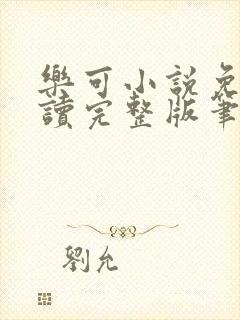 樂可小說免
讀完整版筆
劉允